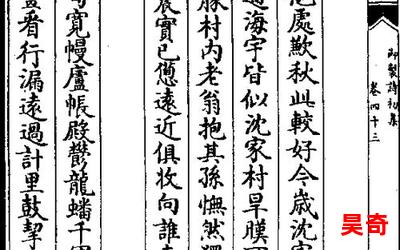 御製詩初集
卷四十三
處歉秋此較好今歲沈
海宇皆似沈家村旱暵
豚村內老翁抱其孫憮然
宸實已慙遠近俱牧向誰
寬幔廬帳殿鬱龍蟠千
看行漏遠過計里鼓挈
昊奇